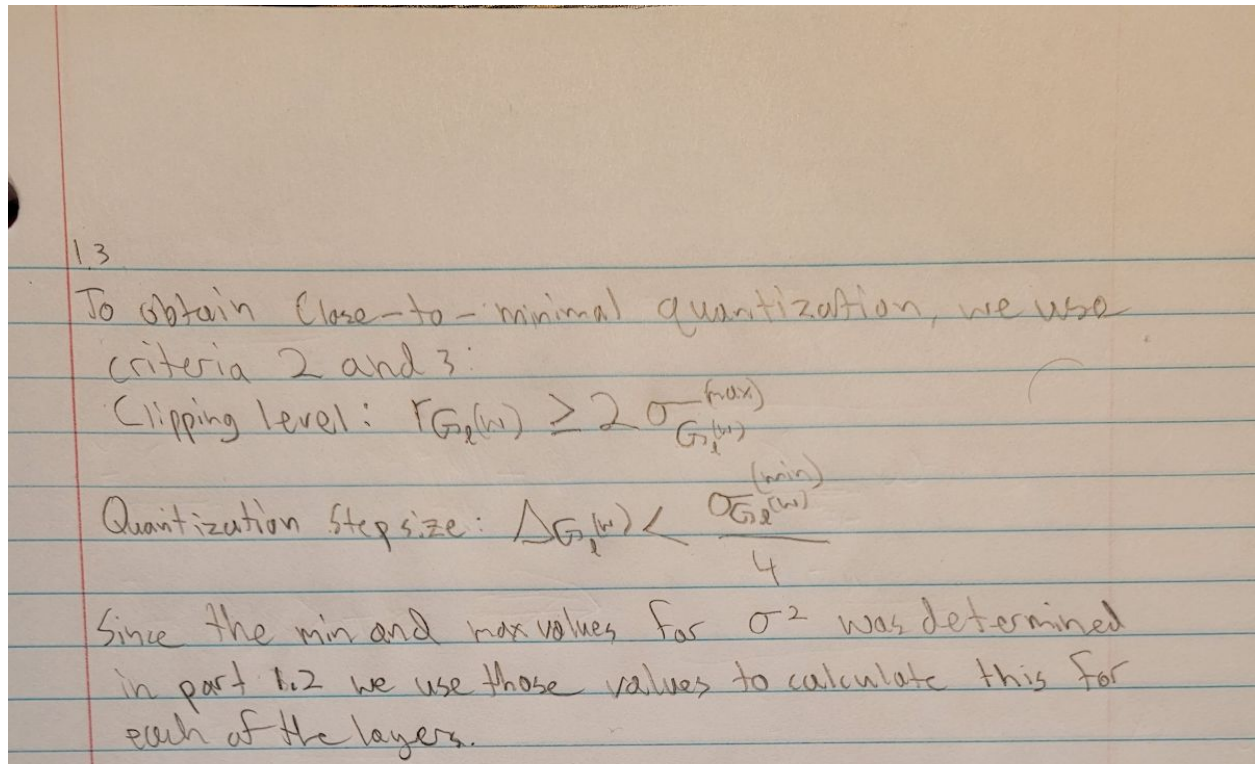 1.3
To obtain Close-to-minimal quantization, we use
criteria 2 and 3:
Clipping level: r_{G_l^{(w)}} ≥ 2 σ_{G_l^{(w)}}^{(max)}
Quantization Stepsize: Δ_{G_l^{(w)}} < σ_{G_l^{(w)}}^{(min)} / 4
Since the min and max values for σ² was determined
in part 1.2 we use those values to calculate this for
each of the layers.